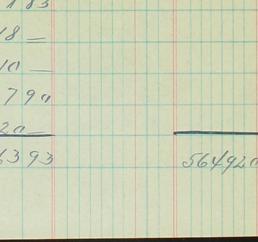 183
18 —
10 —
790
20 —
6393 564920